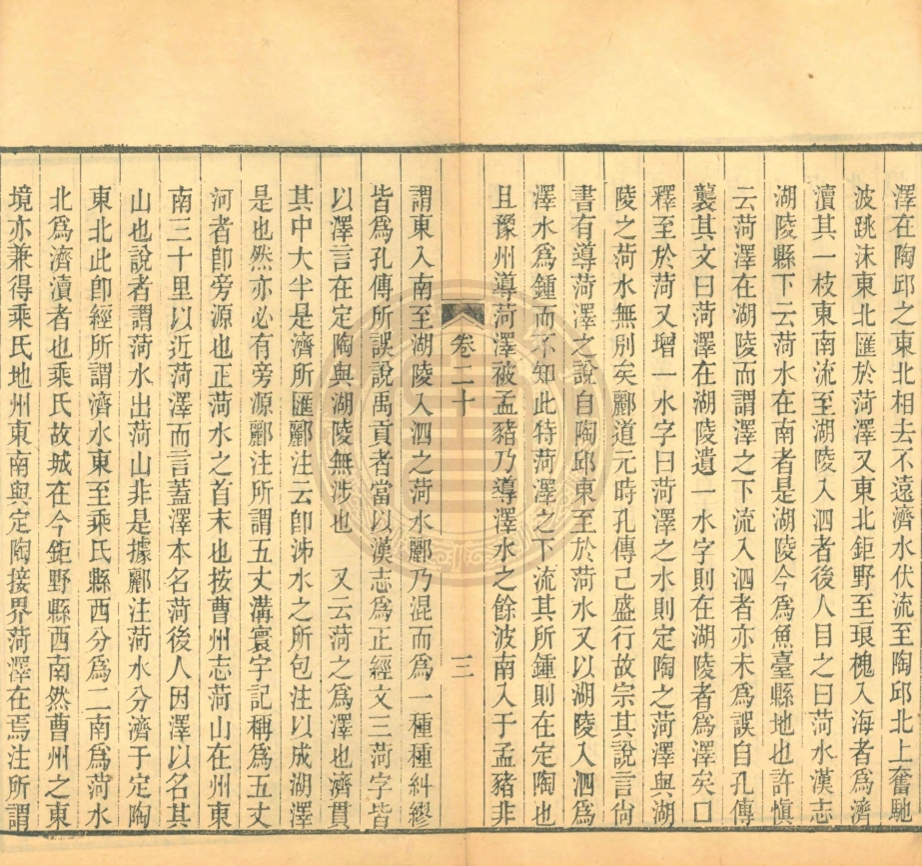 澤在陶邱之東北相去不遠濟水伏流至陶邱北上奮馳
波跳沫東北匯於菏澤又東北鉅野至琅槐入海者爲濟
瀆其一枝東南流至湖陵入泗者後人目之曰菏水漢志
湖陵縣下云菏水在南者是湖陵今爲魚臺縣地也許愼
云菏澤在湖陵而謂澤之下流入泗者亦未爲誤自孔傳
襲其文曰菏澤在湖陵遺一水字則在湖陵者爲澤矣口
釋至於菏又增一水字曰菏澤之水則定陶之菏澤與湖
陵之菏水無別矣酈道元時孔傳已盛行故宗其說言尙
書有導菏澤之說自陶邱東至於菏水又以湖陵入泗爲
澤水爲鍾而不知此特菏澤之下流其所鍾則在定陶也
且豫州導菏澤被孟豬乃導澤水之餘波南入于孟豬非
卷二十
三
謂東入南至湖陵入泗之菏水酈乃混而爲一種種糾繆
皆爲孔傳所誤說禹貢者當以漢志爲正經文三菏字皆
以澤言在定陶與湖陵無涉也　又云菏之爲澤也濟貫
其中大半是濟所匯酈注云卽泲水之所包注以成湖澤
是也然亦必有旁源酈注所謂五丈溝寰宇記稱爲五丈
河者卽旁源也正菏水之首末也按曹州志菏山在州東
南三十里以近菏澤而言蓋澤本名菏後人因澤以名其
山也說者謂菏水出菏山非是據酈注菏水分濟于定陶
東北此卽經所謂濟水東至乘氏縣西分爲二南爲菏水
北爲濟瀆者也乘氏故城在今鉅野縣西南然曹州之東
境亦兼得乘氏地州東南與定陶接界菏澤在焉注所謂